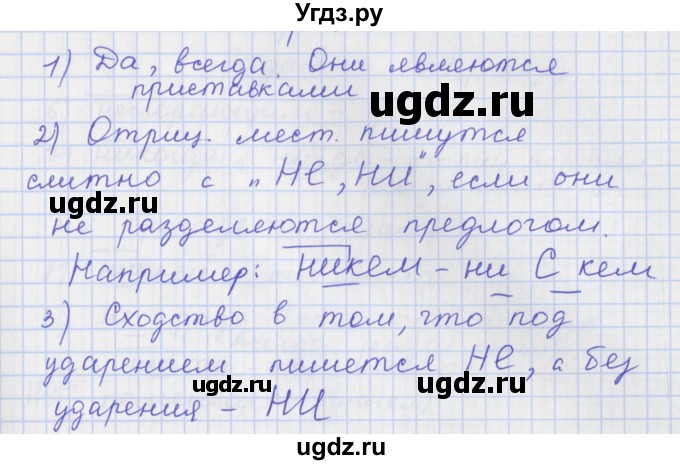 Угдз.ру
1) Да, всегда. Они являются
приставками
ugdz.ru
2) Отриц. мест. пишутся
слитно с "НЕ, НИ", если они
ugdz.ru
ugdz.ru
не разделяются предлогом.
Например: никем – ни С кем
3) Сходство в том, что под
ударением пишется НЕ, а без
ugdz.ru
ugdz.ru
ударения – НИ
ugdz.ru